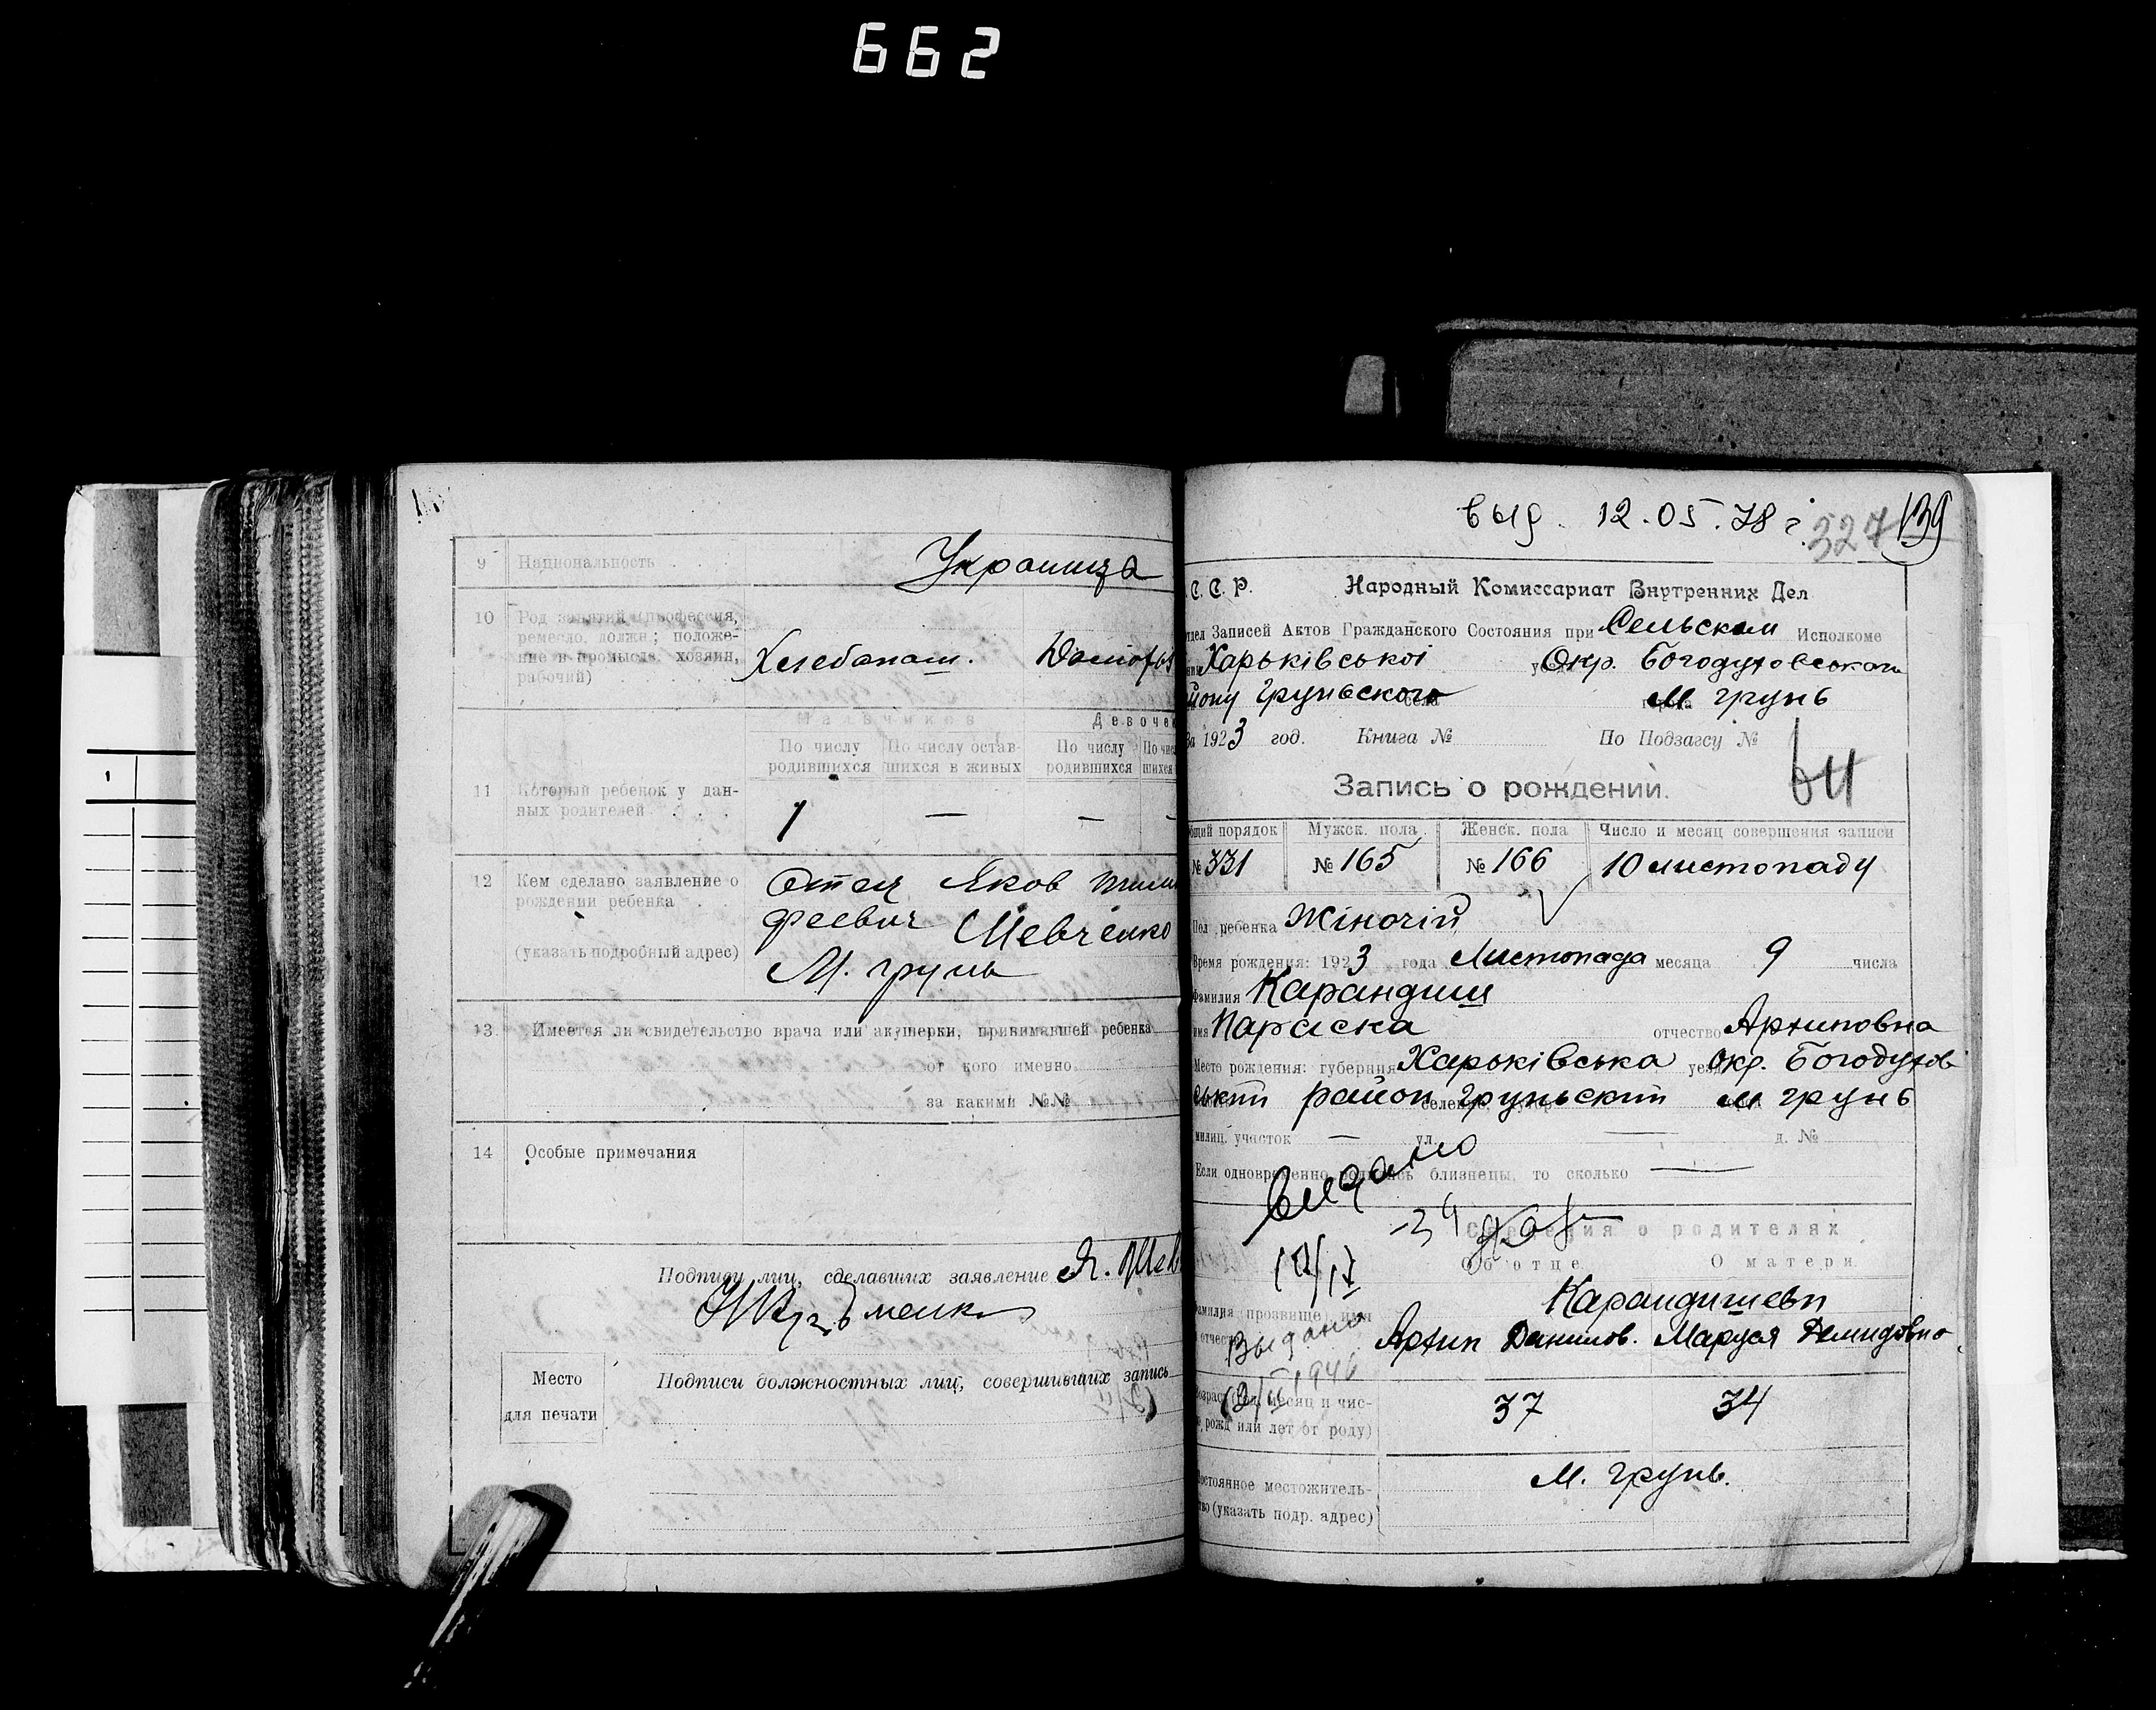 662
9 Национальность Украинца
10 Род занятий (профессия,
ремесло, должн.; положе-
ние в промысле, хозяин,
рабочий)
Хлебопаш.
Мальчиков
Девочек
По числу родившихся
По числу остав- шихся в живых
По числу родившихся
11 Который ребенок у дан-
ных родителей
1 — —
12 Кем сделано заявление о
рождении ребенка
(указать подробный адрес)
Отец Яков Тимо
феевич Шевченко
М. грунь
13 Имеется ли свидетельство врача или акушерки, принимавшей ребенка
от кого именно
за какими №№
14 Особые примечания
Подписи лиц, сделавших заявление Я. Шев
Место
для печати
Подписи должностных лиц, совершивших запись
выд. 12.05.78 г.
327 139
С. С. Р. Народный Комиссариат Внутренних Дел
Отдел Записей Актов Гражданского Состояния при Сельском Исполкоме
Харьківської Окр. Богодуховского
йону Груньского села города М. грунь
За 1923 год. Книга № По Подзагсу №
64
Запись о рождении.
Общий порядок Мужск. пола Женск. пола Число и месяц совершения записи
№ 331 № 165 № 166 10 листопаду
Пол ребенка Жіночій
Время рождения: 1923 года Листопада месяца 9 числа
Фамилия Карандиш
имя Параска отчество Архиповна
Место рождения: губерния Харьківська уезд Окр. Богодухов
ський район Груньский м грунь
милиц. участок — ул. — д. №
Если одновременно родились близнецы, то сколько —
видано
Сведения о родителях
Об отце О матери
Фамилия, прозвище, имя
и отчество
Карандишевы
Архип Данилов. Маруся Демидовна
Выдано
1946
Возраст (год, месяц и чис-
ло рожд. или лет от роду)
37 34
Постоянное местожитель-
ство (указать подр. адрес)
М. грунь.